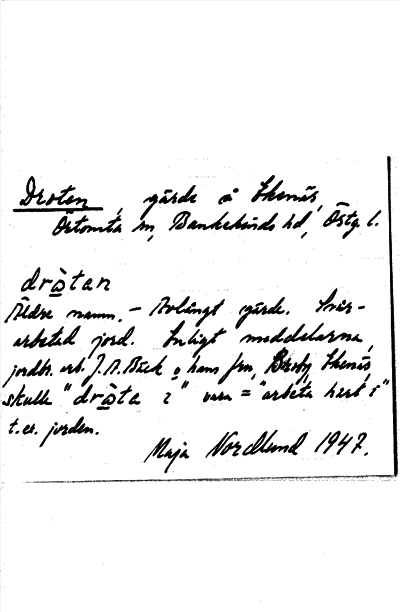 Droten, gärde å Ekenäs,
Örtomta sn, Bankekinds hd, Östg. l.
drò̲tan
Äldre namn. – Avlångt gärde. Svår-
arbetad jord. Enligt meddelarna,
jordbr. arb. J. A. Bäck o hans fru, Ekenäs,
skulle "drò̲ta i" vara = "arbeta hårt i"
t.ex. jorden.
Maja Nordlund 1947.